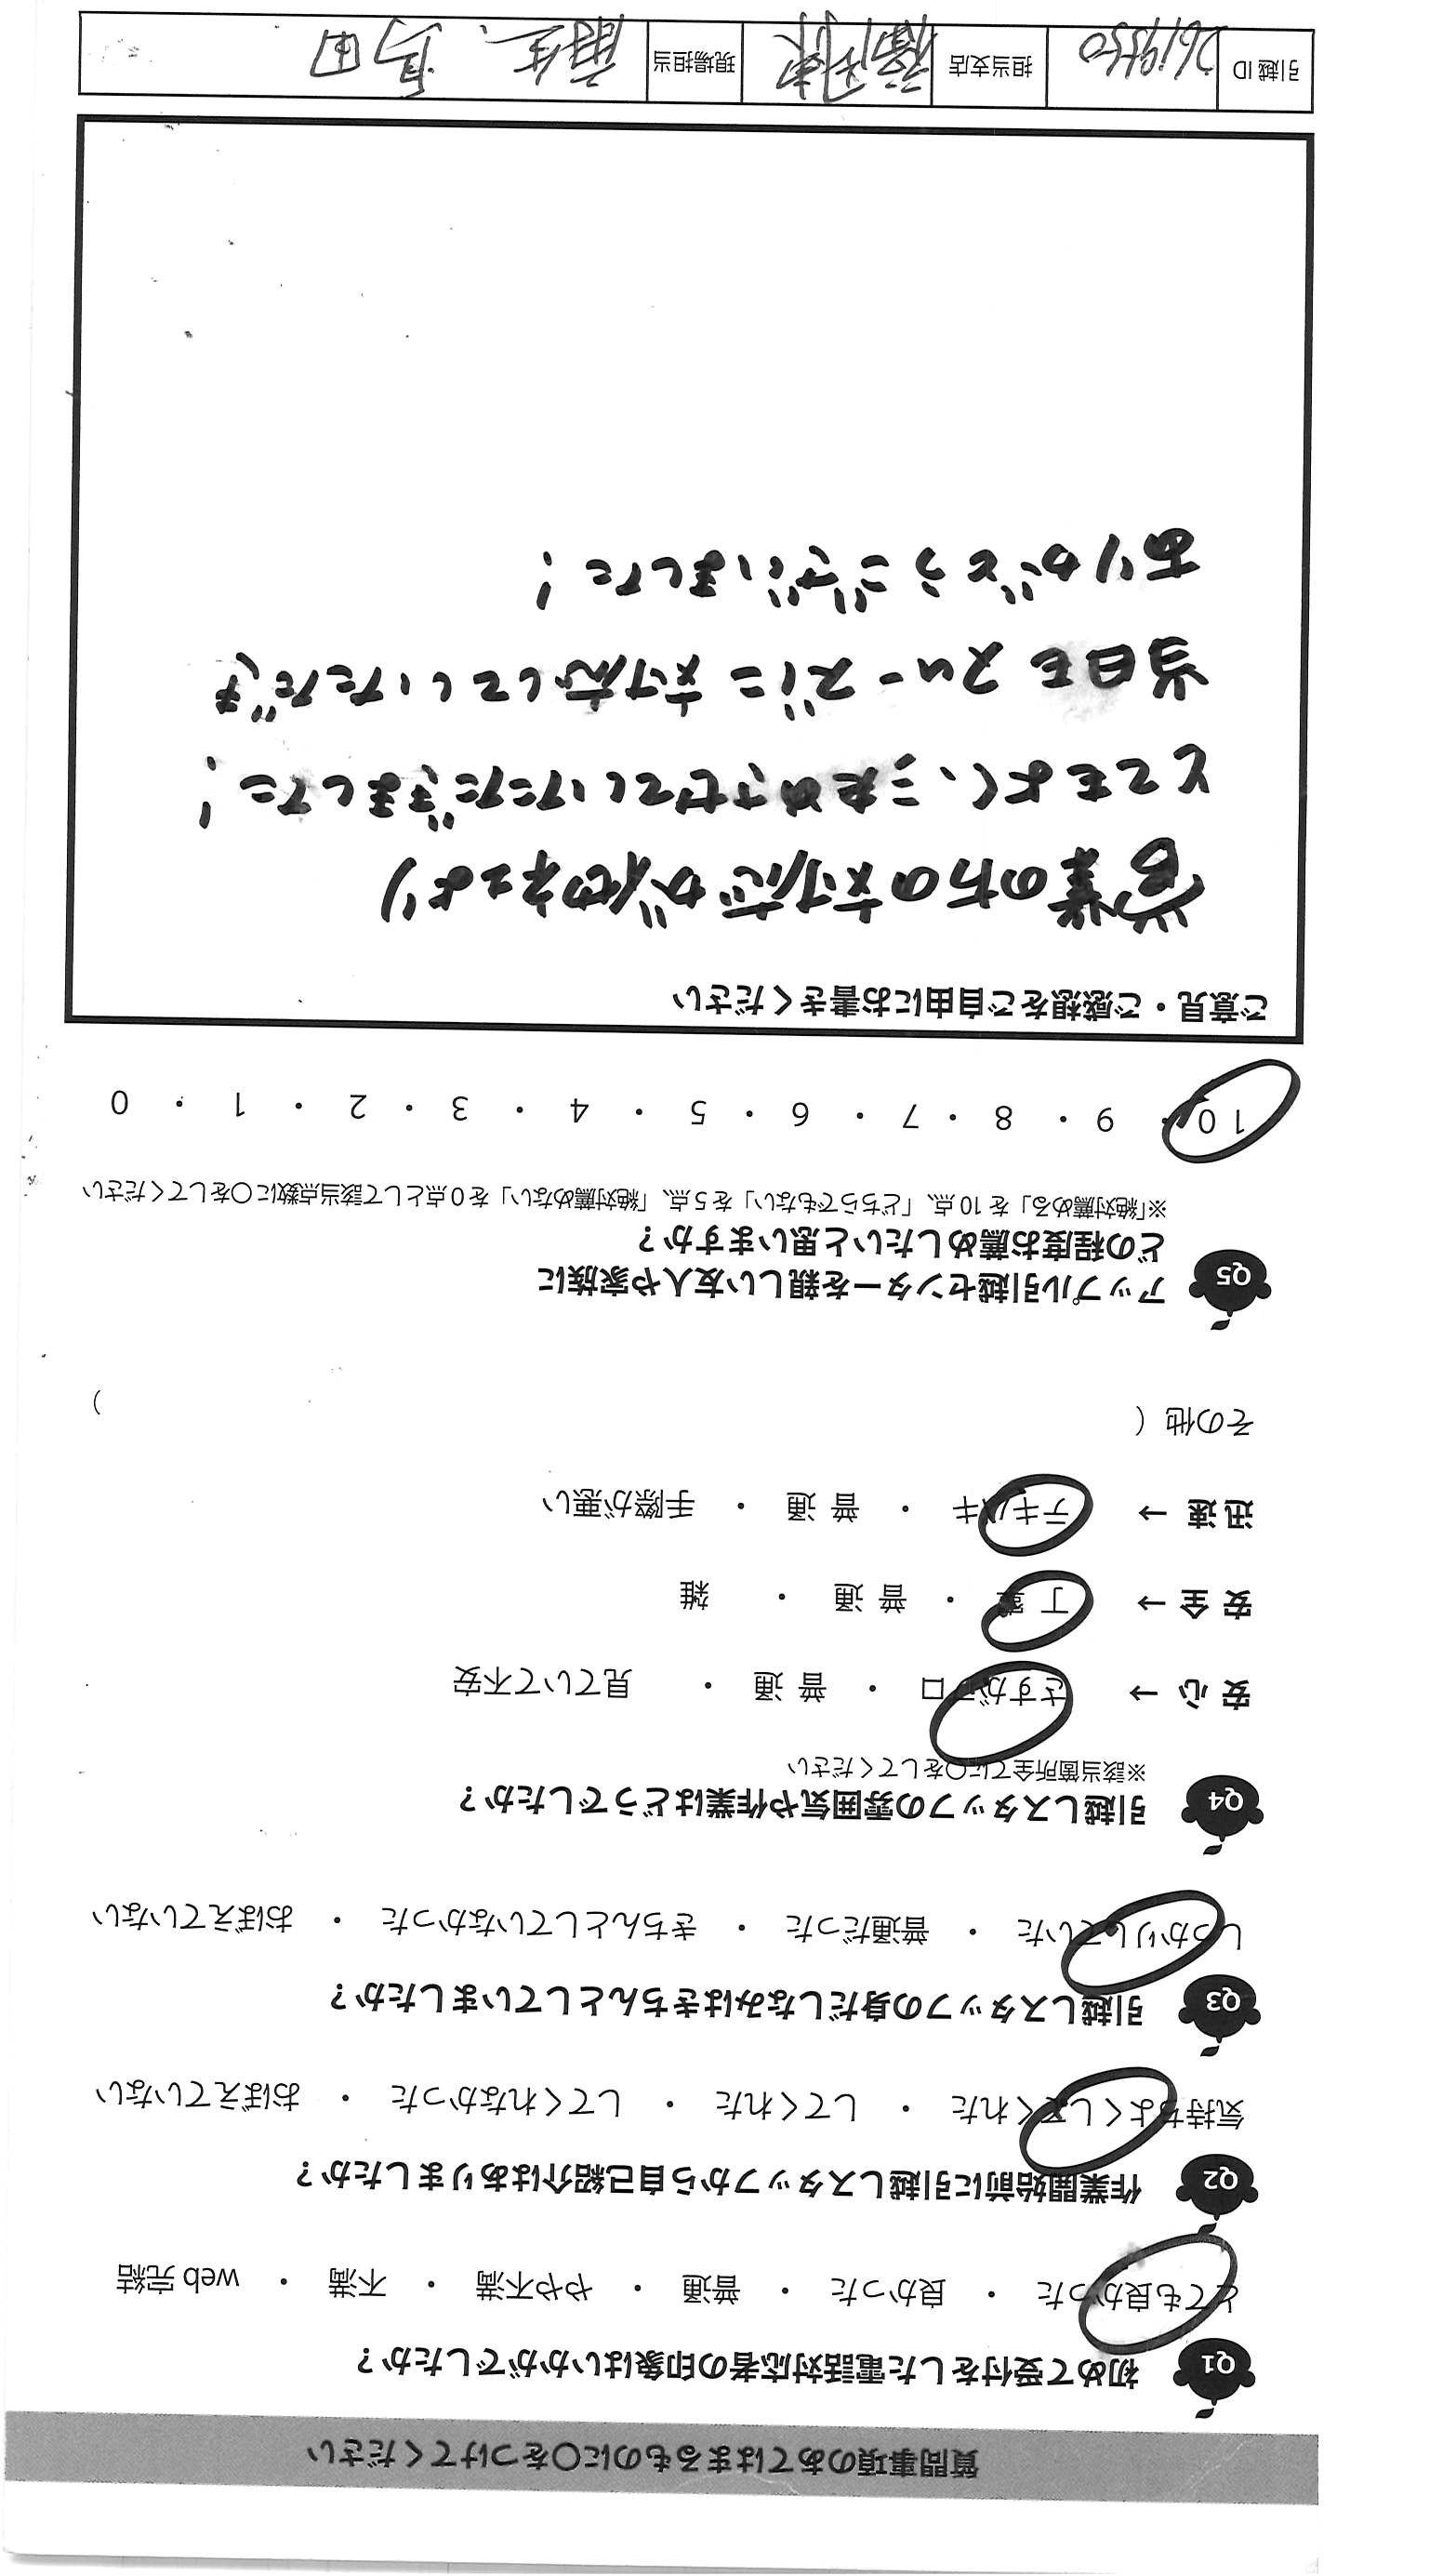 質問事項のあてはまるものに〇をつけてください
Q1 初めて受付をした電話対応者の印象はいかがでしたか？
とても良かった ・ 良かった ・ 普通 ・ やや不満 ・ 不満 ・ web 完結
Q2 作業開始前に引越しスタッフから自己紹介はありましたか？
気持ちよくしてくれた ・ してくれた ・ してくれなかった ・ おぼえていない
Q3 引越しスタッフの身だしなみはきちんとしていましたか？
しっかりしていた ・ 普通だった ・ きちんとしていなかった ・ おぼえていない
Q4 引越しスタッフの雰囲気や作業はどうでしたか？
※該当箇所全てに〇をしてください
安心 → さすがプロ ・ 普通 ・ 見ていて不安
安全 → 丁寧 ・ 普通 ・ 雑
迅速 → テキパキ ・ 普通 ・ 手際が悪い
その他（ ）
Q5 アップル引越センターを親しい友人や家族に
どの程度お薦めしたいと思いますか？
※「絶対薦める」を 10 点、「どちらでもない」を 5 点、「絶対薦めない」を 0 点として該当点数に〇をしてください
10 ・ 9 ・ 8 ・ 7 ・ 6 ・ 5 ・ 4 ・ 3 ・ 2 ・ 1 ・ 0
ご意見・ご感想をご自由にお書きください
営業の方の対応が他社より
とてもよく、きめさせていただきました！
当日もスムーズに対応していただき
ありがとうございました！
引越 ID 2619550 担当支店 現場担当 島田